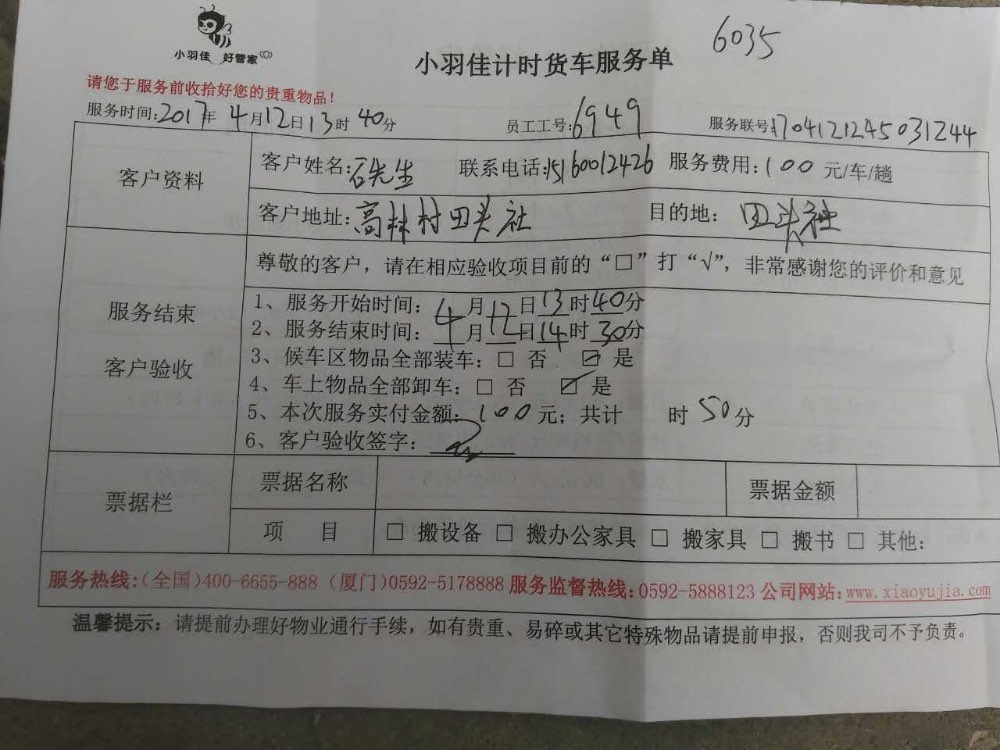 小羽佳 好管家
6035
小羽佳计时货车服务单
请您于服务前收拾好您的贵重物品！
服务时间：2017年4月12日13时40分 员工工号：6949 服务联号：1704121245031244
客户资料
客户姓名：石先生 联系电话：15160012426 服务费用：100 元/车/趟
客户地址：高林村田头社 目的地：田头社
尊敬的客户，请在相应验收项目前的“□”打“√”，非常感谢您的评价和意见
服务结束
客户验收
1、服务开始时间：4月12日13时40分
2、服务结束时间：4月12日14时30分
3、候车区物品全部装车：□ 否 ☑ 是
4、车上物品全部卸车：□ 否 ☑ 是
5、本次服务实付金额：100元；共计 时50分
6、客户验收签字：
票据栏
票据名称 票据金额
项 目 □ 搬设备 □ 搬办公家具 □ 搬家具 □ 搬书 □ 其他：
服务热线：（全国）400-6655-888（厦门）0592-5178888 服务监督热线：0592-5888123 公司网站：www.xiaoyujia.com
温馨提示：请提前办理好物业通行手续，如有贵重、易碎或其它特殊物品请提前申报，否则我司不予负责。